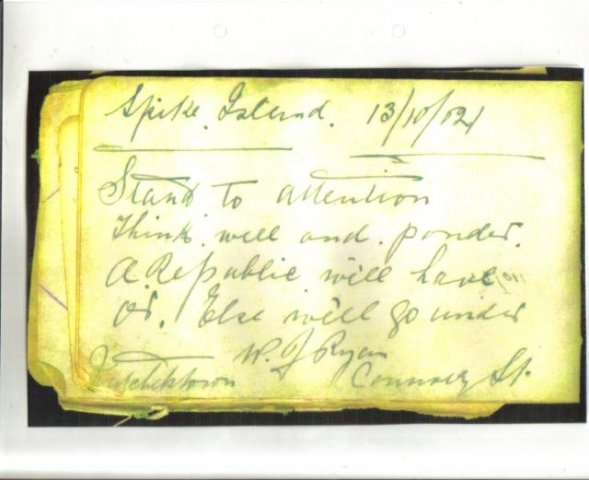 Spike. Island. 13/10/21
Stand to attention
Think. well and. ponder.
A. Republic will have
or. Else will go under
W. J Ryan
Mitchelstown Connolly St.